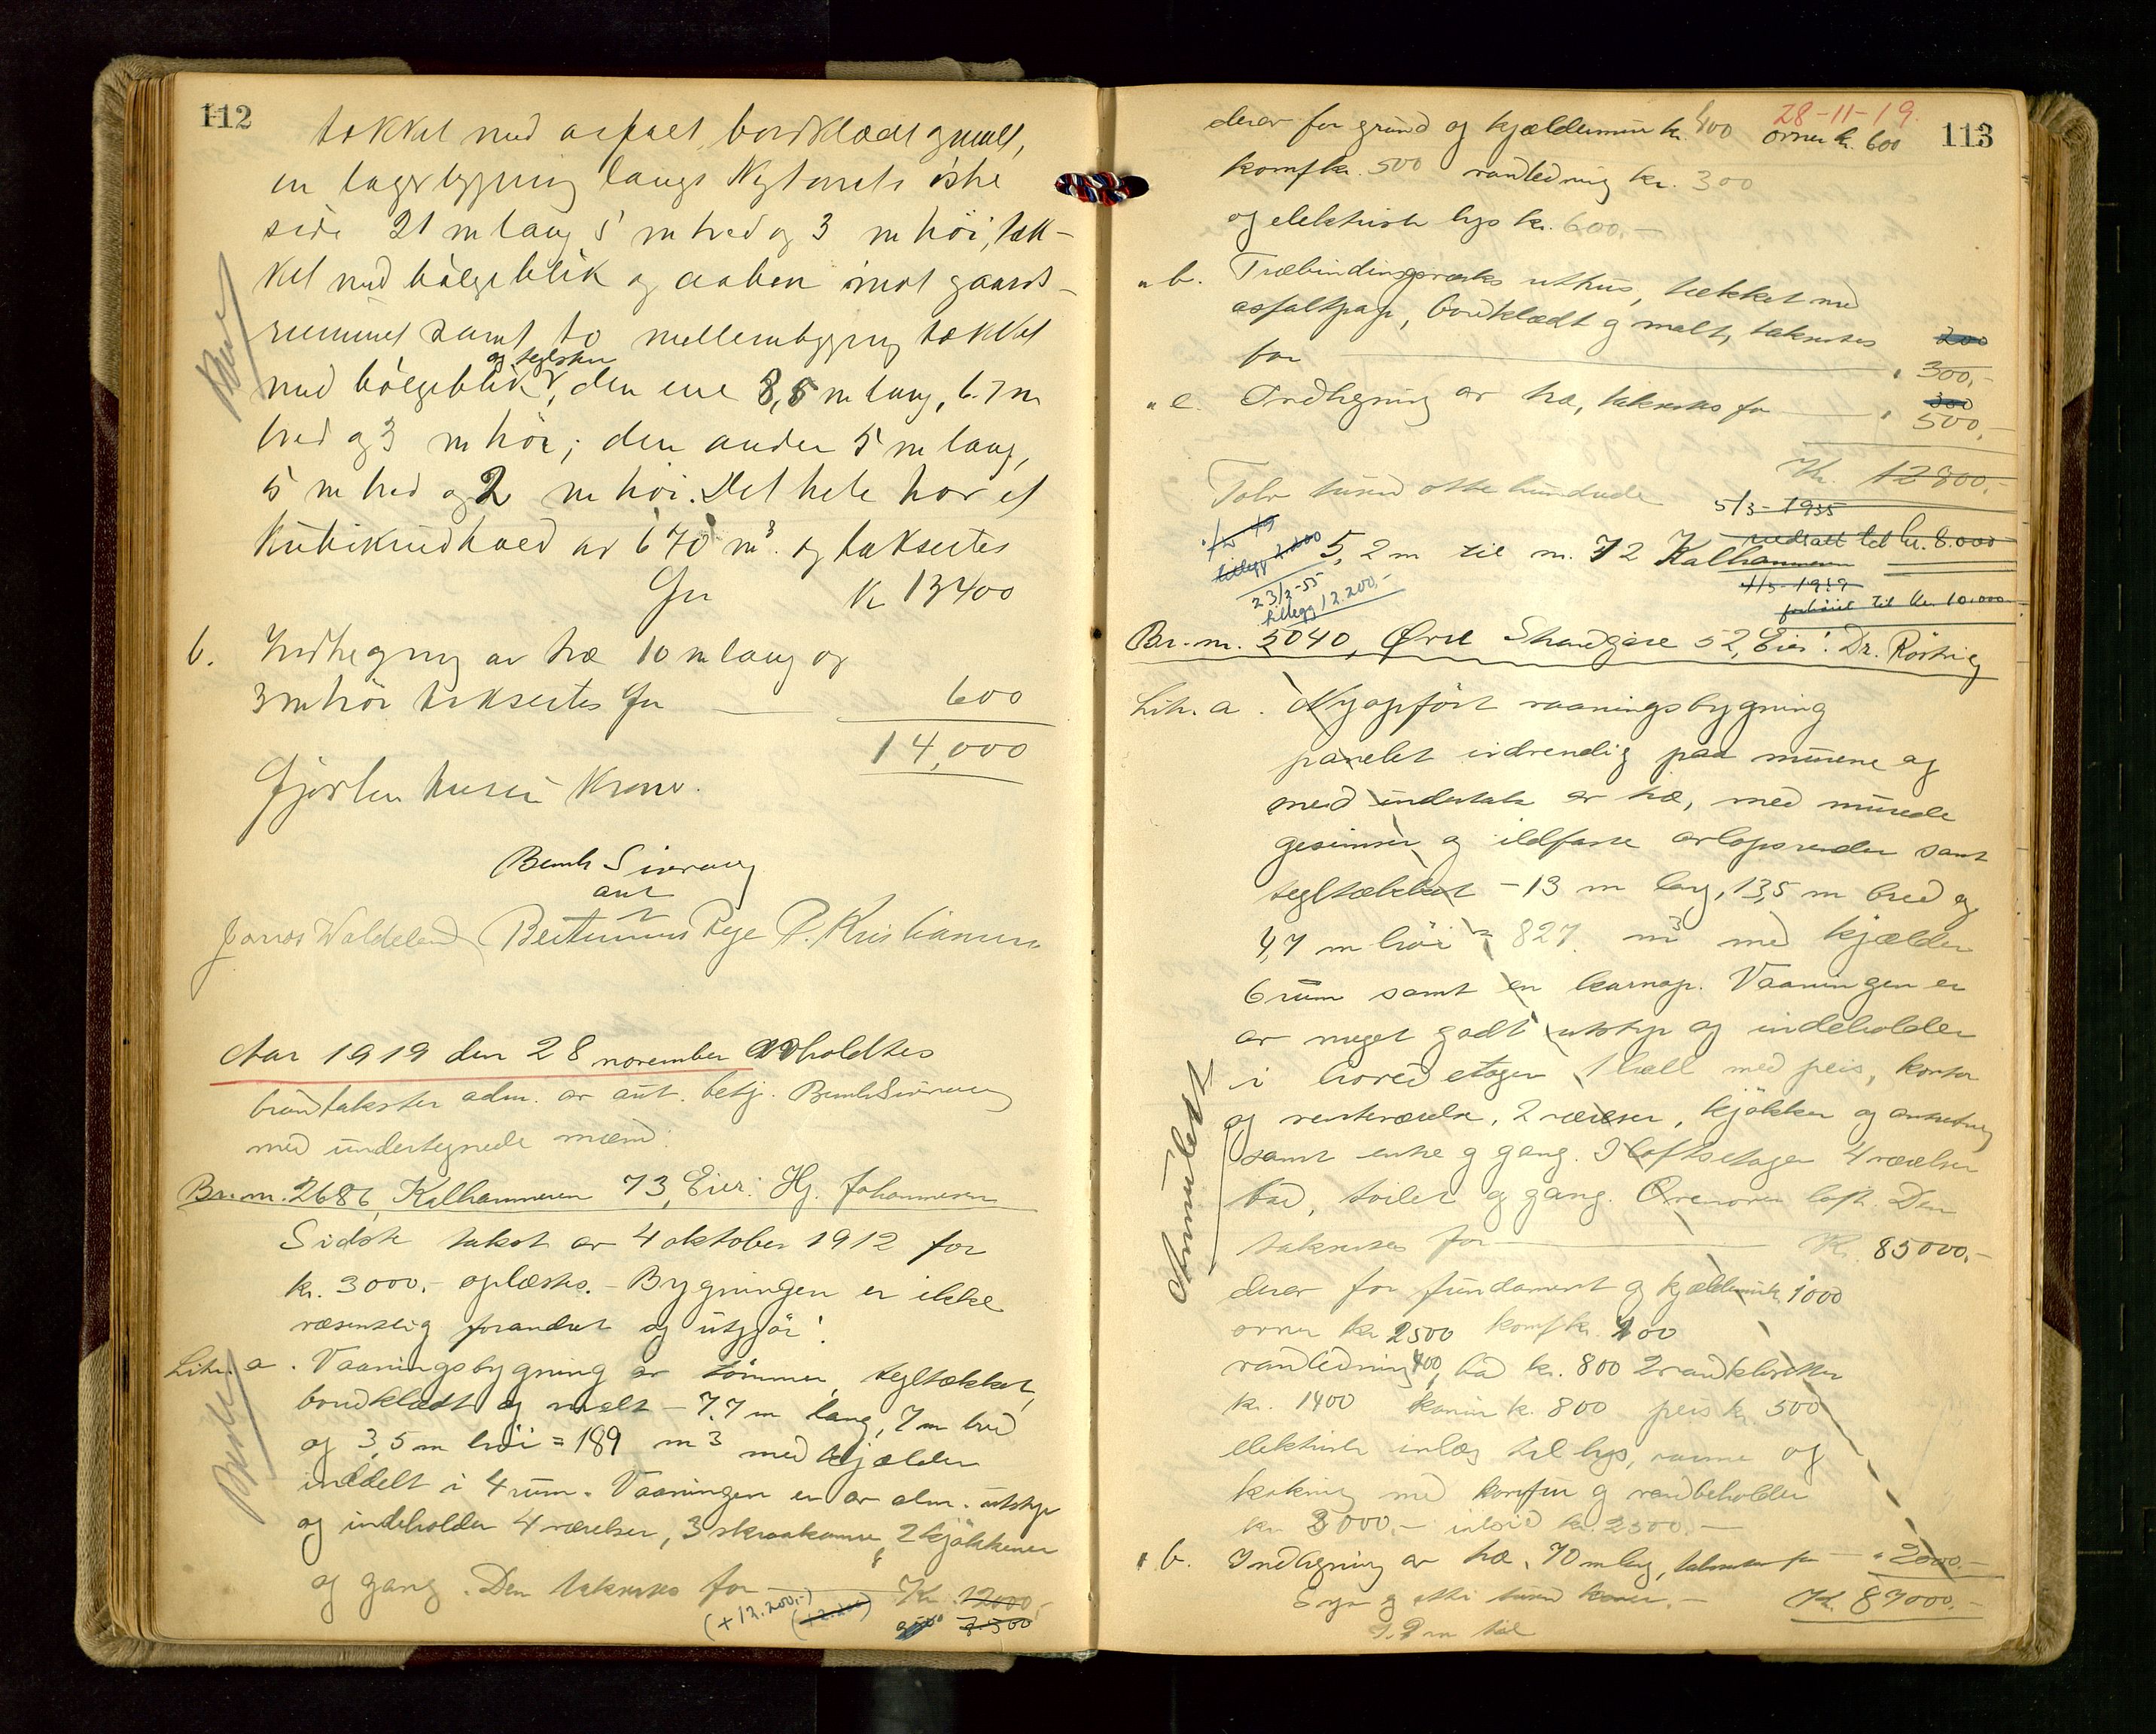 112
tækket med asfalt, bordklædt og malt,
en lagerbygning langs Nytorvets östre
side 21 m lang 5 m bred og 3 m höi, tæk-
ket med bölgeblik og aaben imot gaards-
rummet samt to mellembygning tækket
og teglsten
med bölgeblik, den ene 8,5 m lang, 6.7 m
bred og 3 m höi; den anden 5 m lang,
5 m bred og 2 m höi. Det hele har et
Kubikindhold av 670 m³. og taksertes
for K 13400
b. Indhegning av træ 10 m lang og
3 m höi taksertes for — 600
14,000
Fjorten tusen Kroner.
Bernh Sivervey
aut
Jonas Waldeland Bertinius Rege P. Kristiansen
Aar 1919 den 28 november avholdtes
brandtakster adm. av aut. betj. Bernh Sivervey
med undertegnede mænd:
Br. nr. 2686, Kalhammeren 73, Eier: Hj. Johannesen
Sidste takst av 4 oktober 1912 for
kr. 3000.- oplæstes. - Bygningen er ikke
væsentlig forandret og utgjör:
Litr. a. Vaaningsbygning av tömmer, tegltækket,
bordklædt og malt - 7.7 m lang, 7 m bred
og 3,5 m höi = 189 m3 med kjælder
inddelt i 4 rum. Vaaningen er av alm. utstyr
og indeholder 4 værelser, 3 skraakamre, 2 kjökkener
og gang. Den taksertes for — Kr. 12000,-
(+12.200,-) 7.500
113
28-11-19.
derav for grund og kjældermur kr. 400 ovner kr. 600
komf kr. 500 vandledning kr. 300
og elektrisk lys kr. 600.-
" b. Træbindingsverks uthus, tækket med
asfaltpap, bordklædt og malt, taksertes 200
for — " 300,-
" c. Indhegning av træ, taksertes for — " 300
500,-
Kr. 12800.-
Tolv tusen otte hundrede
5/3-1935
nedsatt til kr. 8.000
5,2 m til nr. 72 Kalhammeren
23/2-55
tillegg 12.200,-
forhöiet til kr. 10.000
Br. nr. 3040, Övre Strandgate 52, Eier: Dr. Röstvig
Litr. a. Nyopfört vaaningsbygning
panelet indvendig paa murene og
med undertak av træ, med murede
gesimser og ildfaste avlöpsrender samt
tegltækket - 13 m lang, 13,5 m bred og
4,7 m höi = 827 m3 med kjælder
6 rum samt en karnap. Vaaningen er
av meget godt utstyr og indeholder
i hoved etagen 1 hall med peis, kontor
og venteværelse, 2 værelser, kjökken og anretning
samt entre og gang. I loftsetagen 4 værelser
bad, toilet og gang. Ovenover loft. Den
taksertes for — Kr. 85000.-
derav for fundament og kjældermur kr. 1000
ovner kr 2500 komf kr. 400
vandledning 400, bad kr. 800 2 vandklosetter
kr. 1400 kamin k. 800 peis kr. 500
elektrisk inlæg til lys, varme og
kokning med komfur og vandbeholder
kr. 3000.- ildsted kr. 2500.-
" b. Indhegning av træ, 70 m lang, taksertes for — " 2000.-
Kr. 87000.-
Syv og otti tusen kroner.-
Annulert